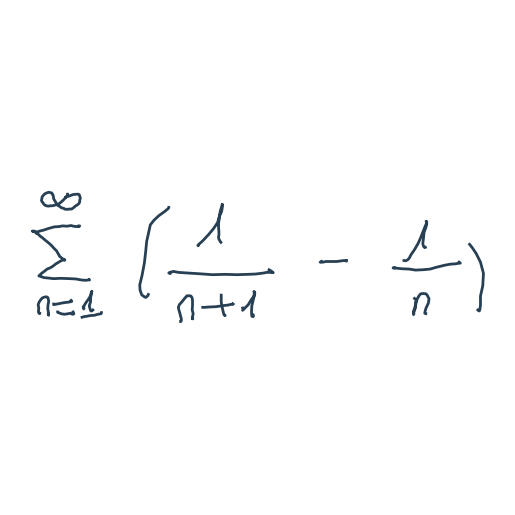 \sum_{n=1}^{\infty} \left( \frac{1}{n+1} - \frac{1}{n} \right)